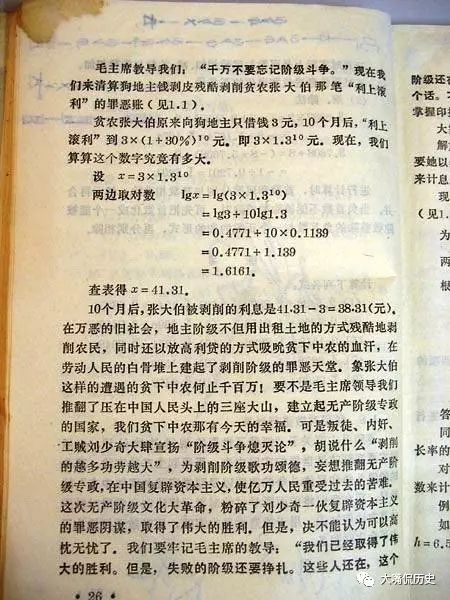 毛主席教导我们：“千万不要忘记阶级斗争。”现在我
们来清算狗地主钱剥皮残酷剥削贫农张大伯那笔“利上滚
利”的罪恶账（见1.1）。
贫农张大伯原来向狗地主只借钱3元，10个月后，“利上
滚利”到3×(1+30%)¹⁰元。即3×1.3¹⁰元。现在，我们
算算这个数字究竟有多大。
设 x=3×1.3¹⁰
两边取对数 lgx=lg(3×1.3¹⁰)
=lg3+10lg1.3
=0.4771+10×0.1139
=0.4771+1.139
=1.6161。
查表得x=41.31。
10个月后，张大伯被剥削的利息是41.31-3=38.31(元)。
在万恶的旧社会，地主阶级不但用出租土地的方式残酷地剥
削农民，同时还以放高利贷的方式吸吮贫下中农的血汗，在
劳动人民的白骨堆上建起了剥削阶级的罪恶天堂。象张大伯
这样的遭遇的贫下中农何止千百万！要不是毛主席领导我们
推翻了压在中国人民头上的三座大山，建立起无产阶级专政
的国家，我们贫下中农那有今天的幸福。可是叛徒、内奸、
工贼刘少奇大肆宣扬“阶级斗争熄灭论”，胡说什么“剥削
的越多功劳越大”，为剥削阶级歌功颂德，妄想推翻无产阶
级专政，在中国复辟资本主义，使亿万人民重受过去的苦难。
这次无产阶级文化大革命，粉碎了刘少奇一伙复辟资本主义
的罪恶阴谋，取得了伟大的胜利。但是，决不能认为可以高
枕无忧了。我们要牢记毛主席的教导：“我们已经取得了伟
大的胜利。但是，失败的阶级还要挣扎。这些人还在，这个
·26·
阶级还在
个话。
掌握印
大
解
要她以
来计息
现
（见1.
为
两
根
答
同
长率的
对
数来计
例
如
h=6.5
大嘴侃历史